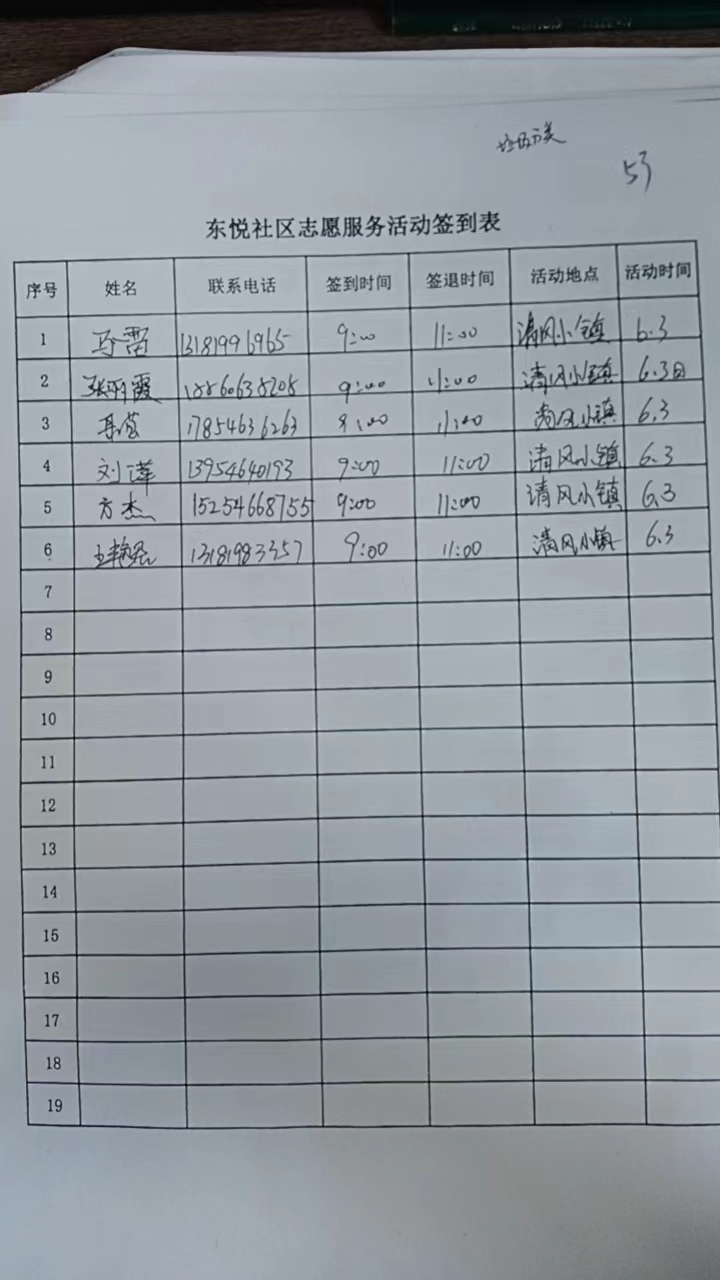 垃圾分类
53
东悦社区志愿服务活动签到表
序号 姓名 联系电话 签到时间 签退时间 活动地点 活动时间
1 马雷 13181996965 9:00 11:00 清风小镇 6.3
2 18860638208 9:00 11:00 清风小镇 6.3日
3 17854636263 9:00 11:00 清风小镇 6.3
4 刘萍 13954640193 9:00 11:00 清风小镇 6.3
5 方杰 15254668755 9:00 11:00 清风小镇 6.3
6 13181983357 9:00 11:00 清风小镇 6.3
7
8
9
10
11
12
13
14
15
16
17
18
19